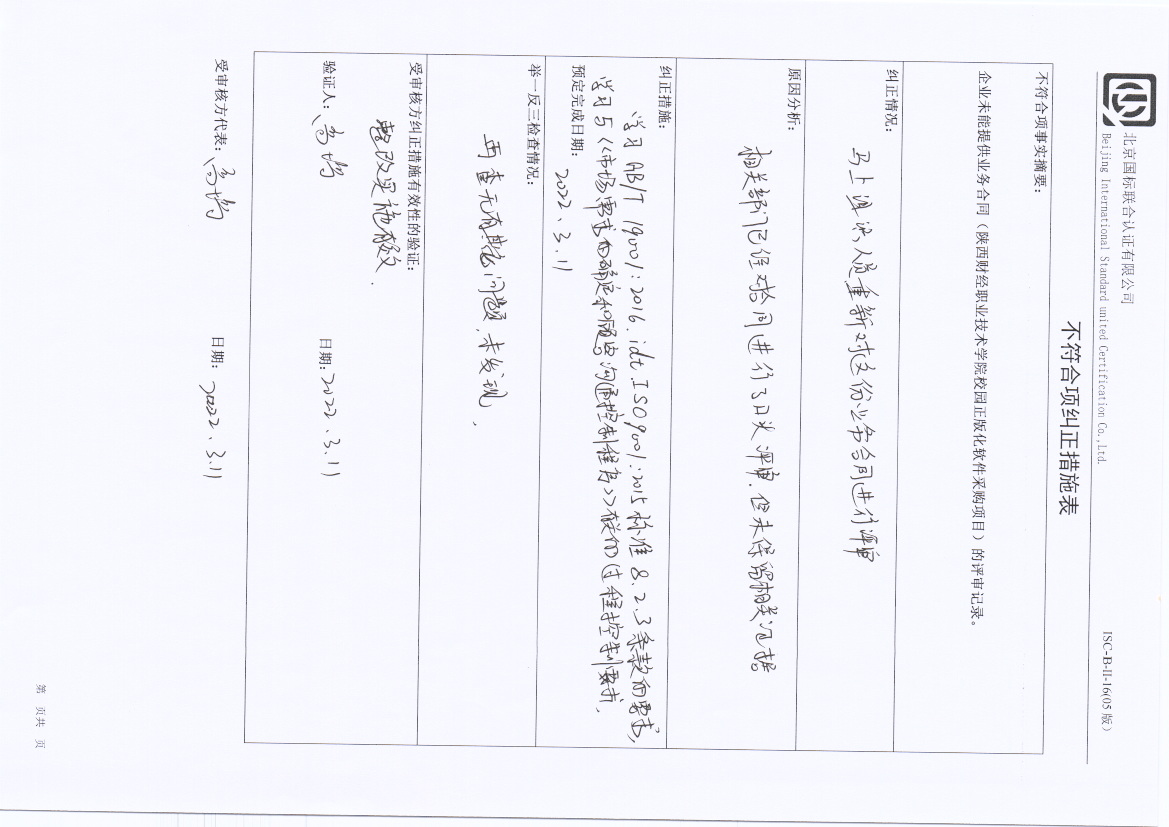 北京国标联合认证有限公司
Beijing International Standard united Certification Co.,Ltd.
ISC-B-II-16(05版)
不符合项纠正措施表
不符合项事实摘要：
企业未能提供业务合同（陕西财经职业技术学院校园正版化软件采购项目）的评审记录。
纠正情况：
马上 人员重新对这份业务合同进行评审
原因分析：
相关部门已经对合同进行了口头评审，但未保留相关证据
纠正措施：
学习 GB/T 19001:2016 idt ISO9001:2015标准8.2.3条款的要求，
学习与《市场需求的确定和顾客沟通控制程序》 的过程控制要求。
预定完成日期：2022、3.11
举一反三检查情况：
再查无有其它问题，未发现，
受审核方纠正措施有效性的验证：
整改实施有效.
验证人： 日期：2022、3.11
受审核方代表： 日期：2022、3.11
第 页共 页